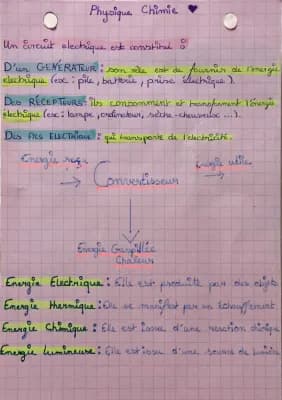 Physique Chimie ♥
Un circuit electrique est constitué :
D'un GENERATEUR : son rôle est de fournir de l'énergie
électrique (ex : pile, batterie, prise électrique).
Des RÉCEPTEURS : Ils consomment et transforment l'énergie
électrique (ex : lampe, ordinateur, sèche-cheveux ...).
Des FILS ELECTRIQUE : qui transporte de l'électricité.
Energie reçue Energie utile
Convertisseur
Energie Gaspillée
Chaleur
Energie Electrique : Elle est produite par des objets
Energie thermique : Elle se manifest par un échauffement
Energie Chimique : Elle est issue d'une reaction chimique
Energie lumineuse : Elle est issue d'une source de lumière